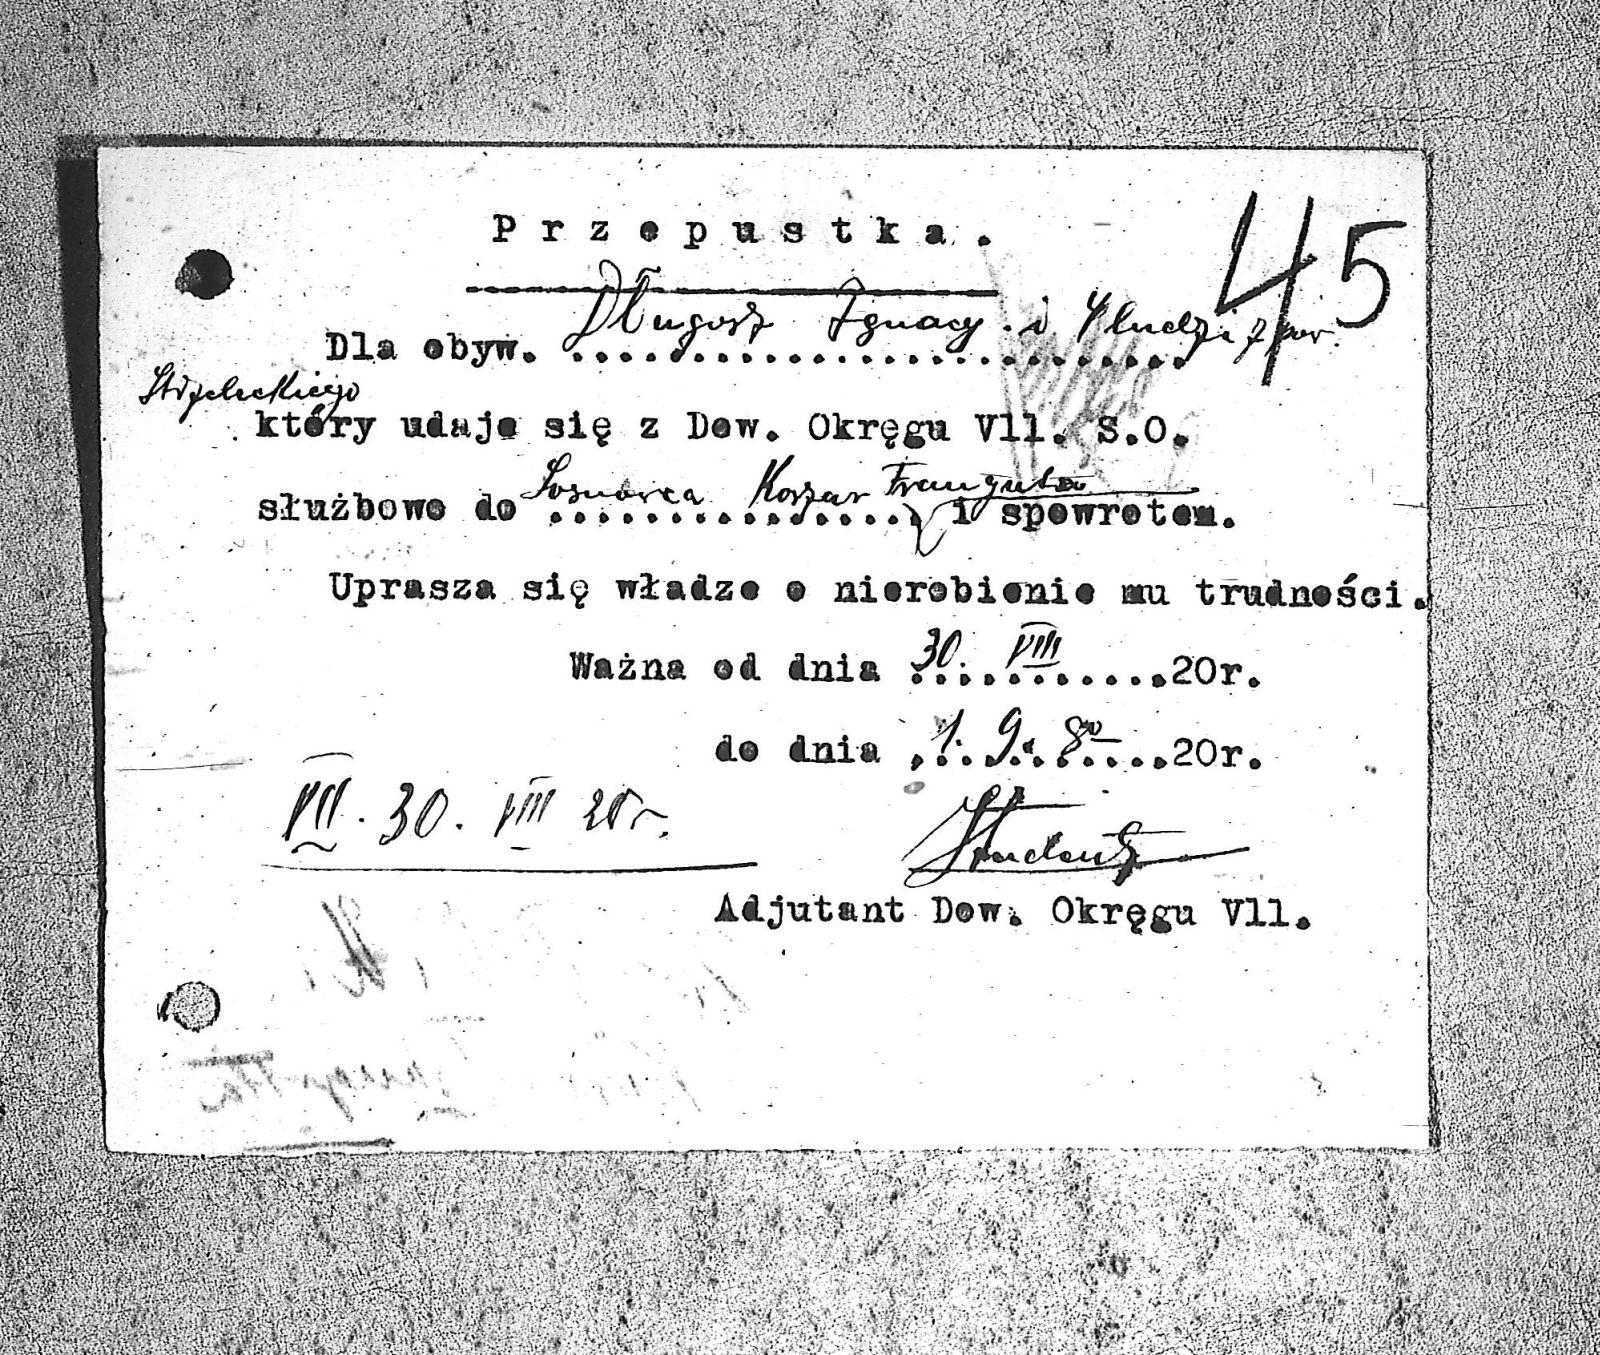 Przepustka.
45
Dla obyw. Długosz Ignacy i 4 ludzi z por.
Strzeleckiego
który udaje się z Dow. Okręgu Vll. S.O.
służbowo do Sosnowca Koszar Traugutta i spowrotem.
Uprasza się władze o nierobienie mu trudności.
Ważna od dnia 30. VIII 20r.
do dnia 1. 9. 8⁰⁰ 20r.
VII. 30. VIII 20 r.
Adjutant Dow. Okręgu Vll.